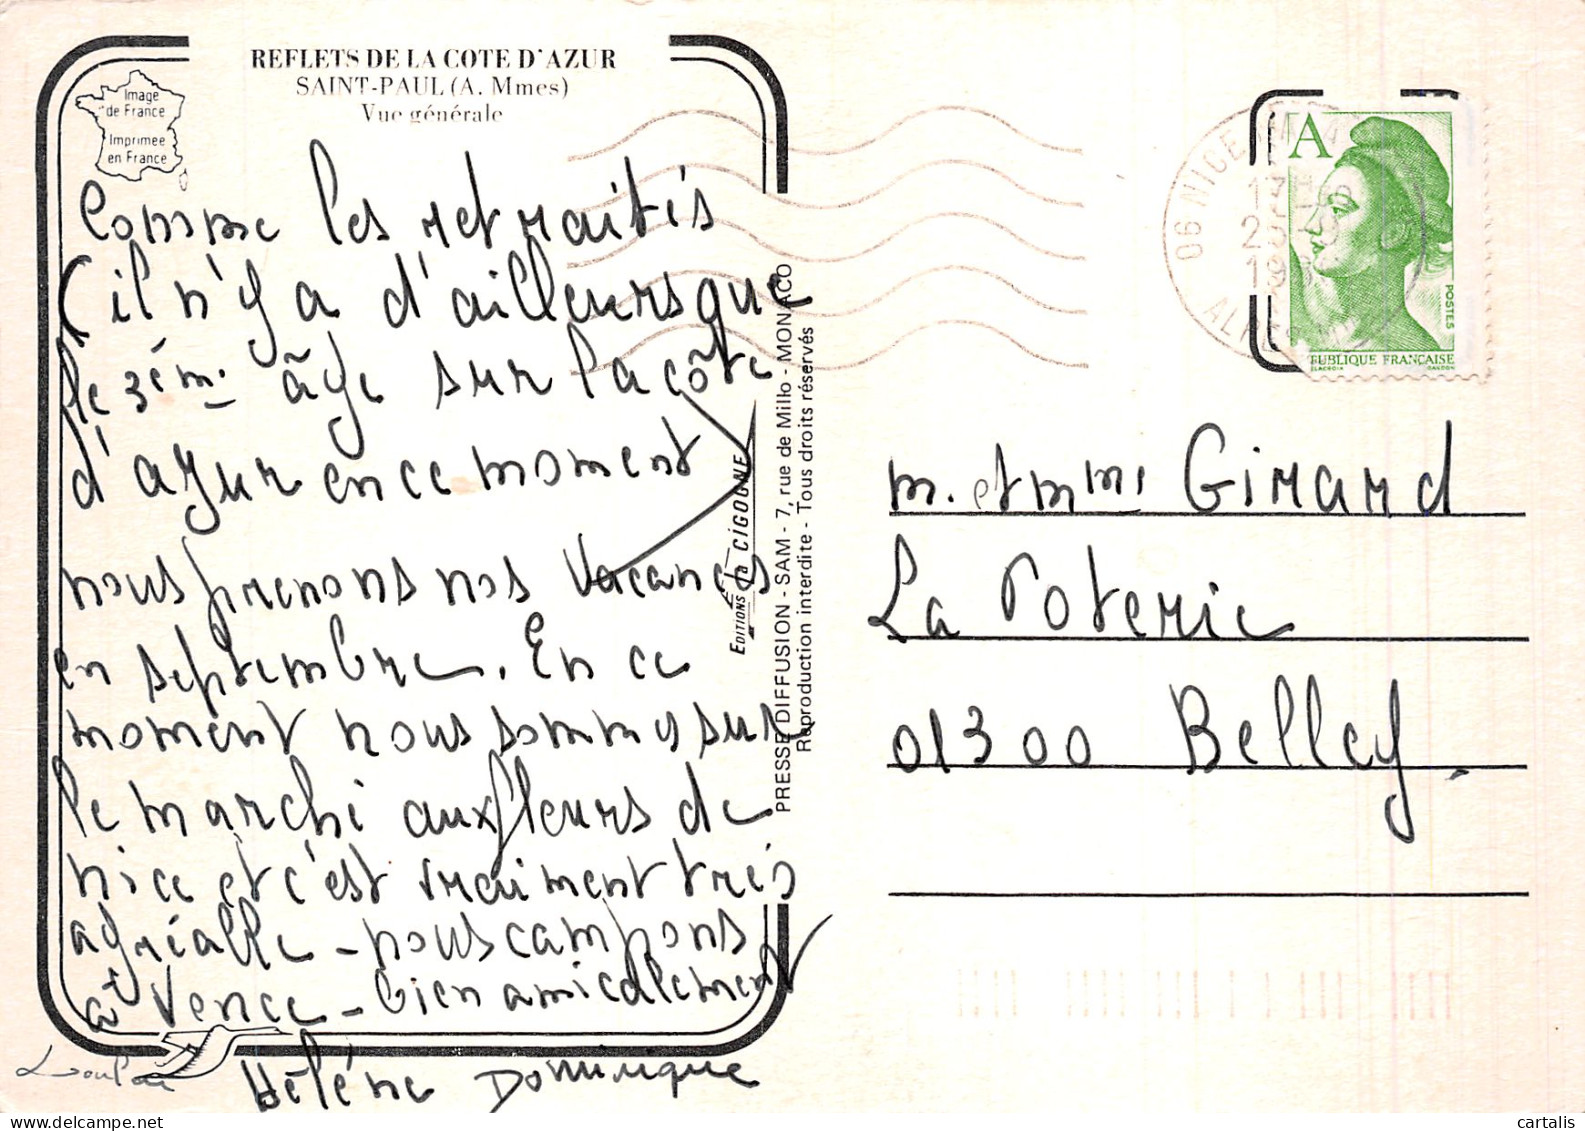 REFLETS DE LA COTE D'AZUR
SAINT-PAUL (A. Mmes)
Vue générale
Image
de France
Imprimée
en France
Comme les retraités
(il n'y a d'ailleurs que
le 3ém. âge sur la côte
d'azur en ce moment
nous prenons nos vacances
en septembre. En ce
moment nous sommes sur
le marché aux fleurs de
nice et c'est vraiment très
agréable - nous campons
à Vence - bien amicalement
Hélène Dominique
EDITIONS la CIGOGNE
PRESSE DIFFUSION - SAM - 7, rue de Millo - MONACO
Reproduction interdite - Tous droits réservés
06 NICE
17H
A
POSTES
PUBLIQUE FRANCAISE
ELACROIX GANDON
m. et mme Girard
La Poterie
01300 Belley
cartalis